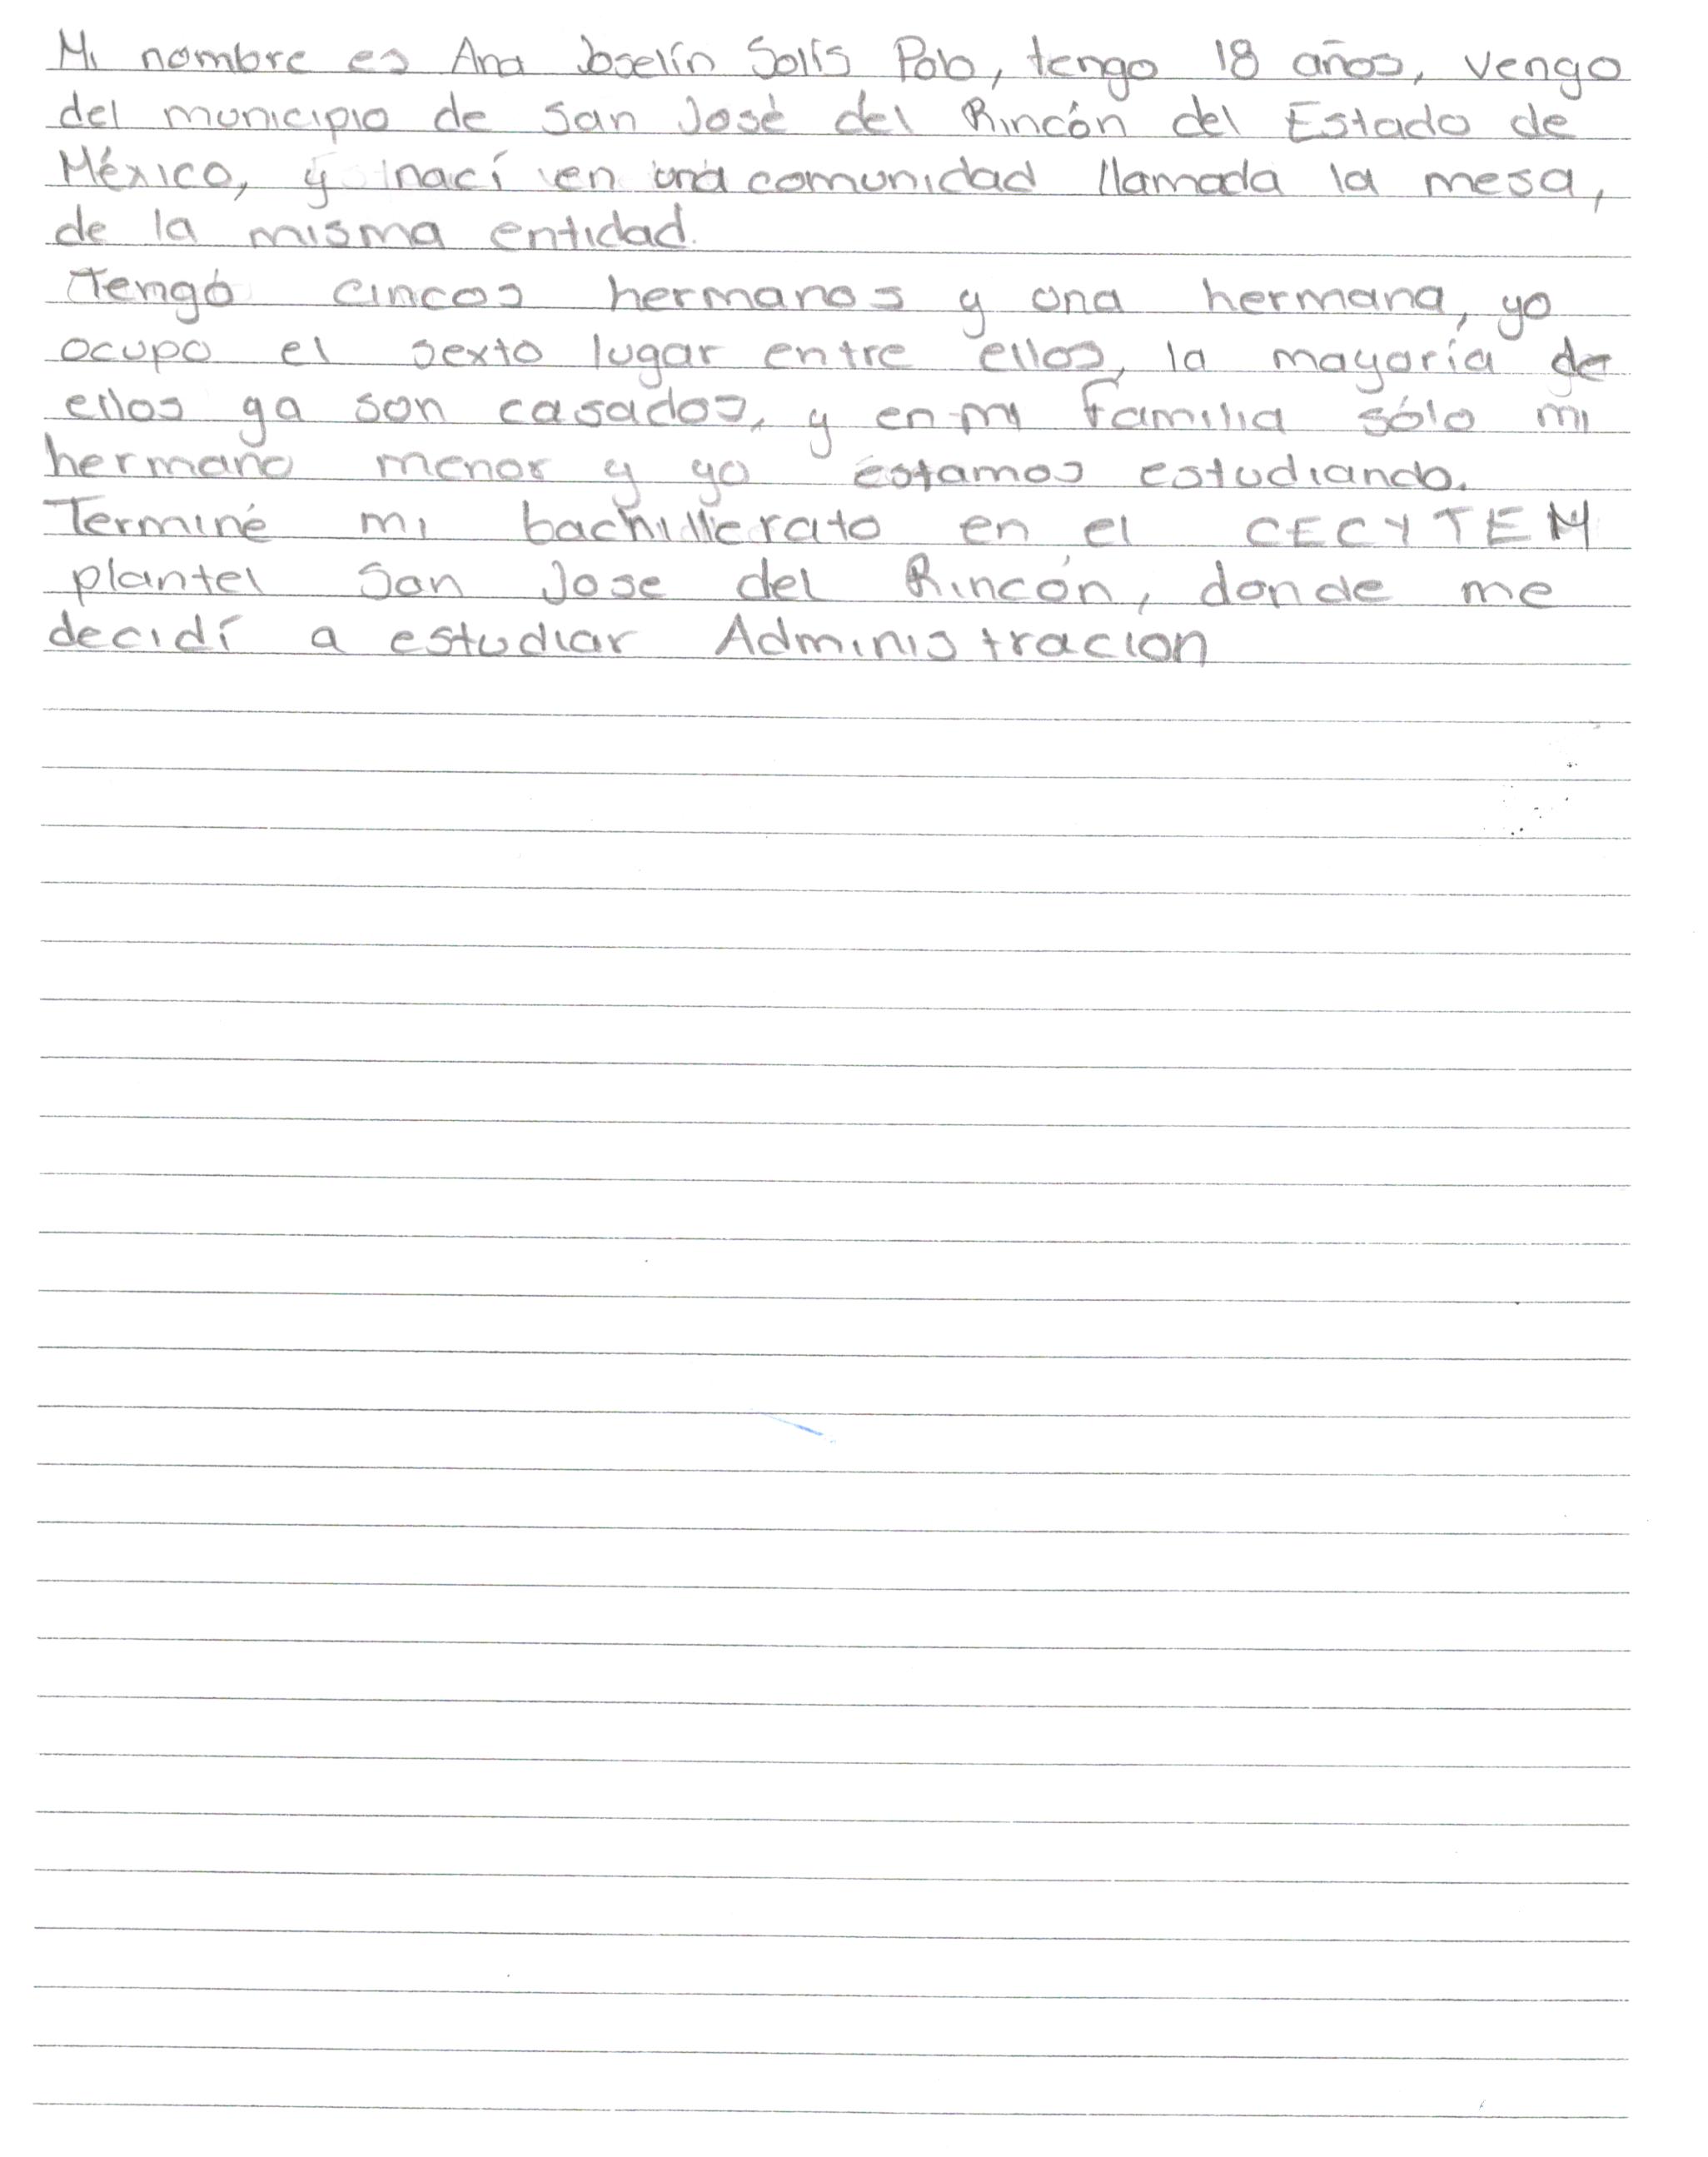 Mi nombre es Ana Joselín Solís Polo, tengo 18 años, vengo
del municipio de San José del Rincón del Estado de
México, y nací en una comunidad llamada la mesa,
de la misma entidad.
Tengo cincos hermanos y una hermana, yo
ocupo el sexto lugar entre ellos, la mayoría de
ellos ya son casados, y en mi familia sólo mi
hermano menor y yo estamos estudiando.
Terminé mi bachillerato en el CECYTEM
plantel San Jose del Rincón, donde me
decidí a estudiar Administración